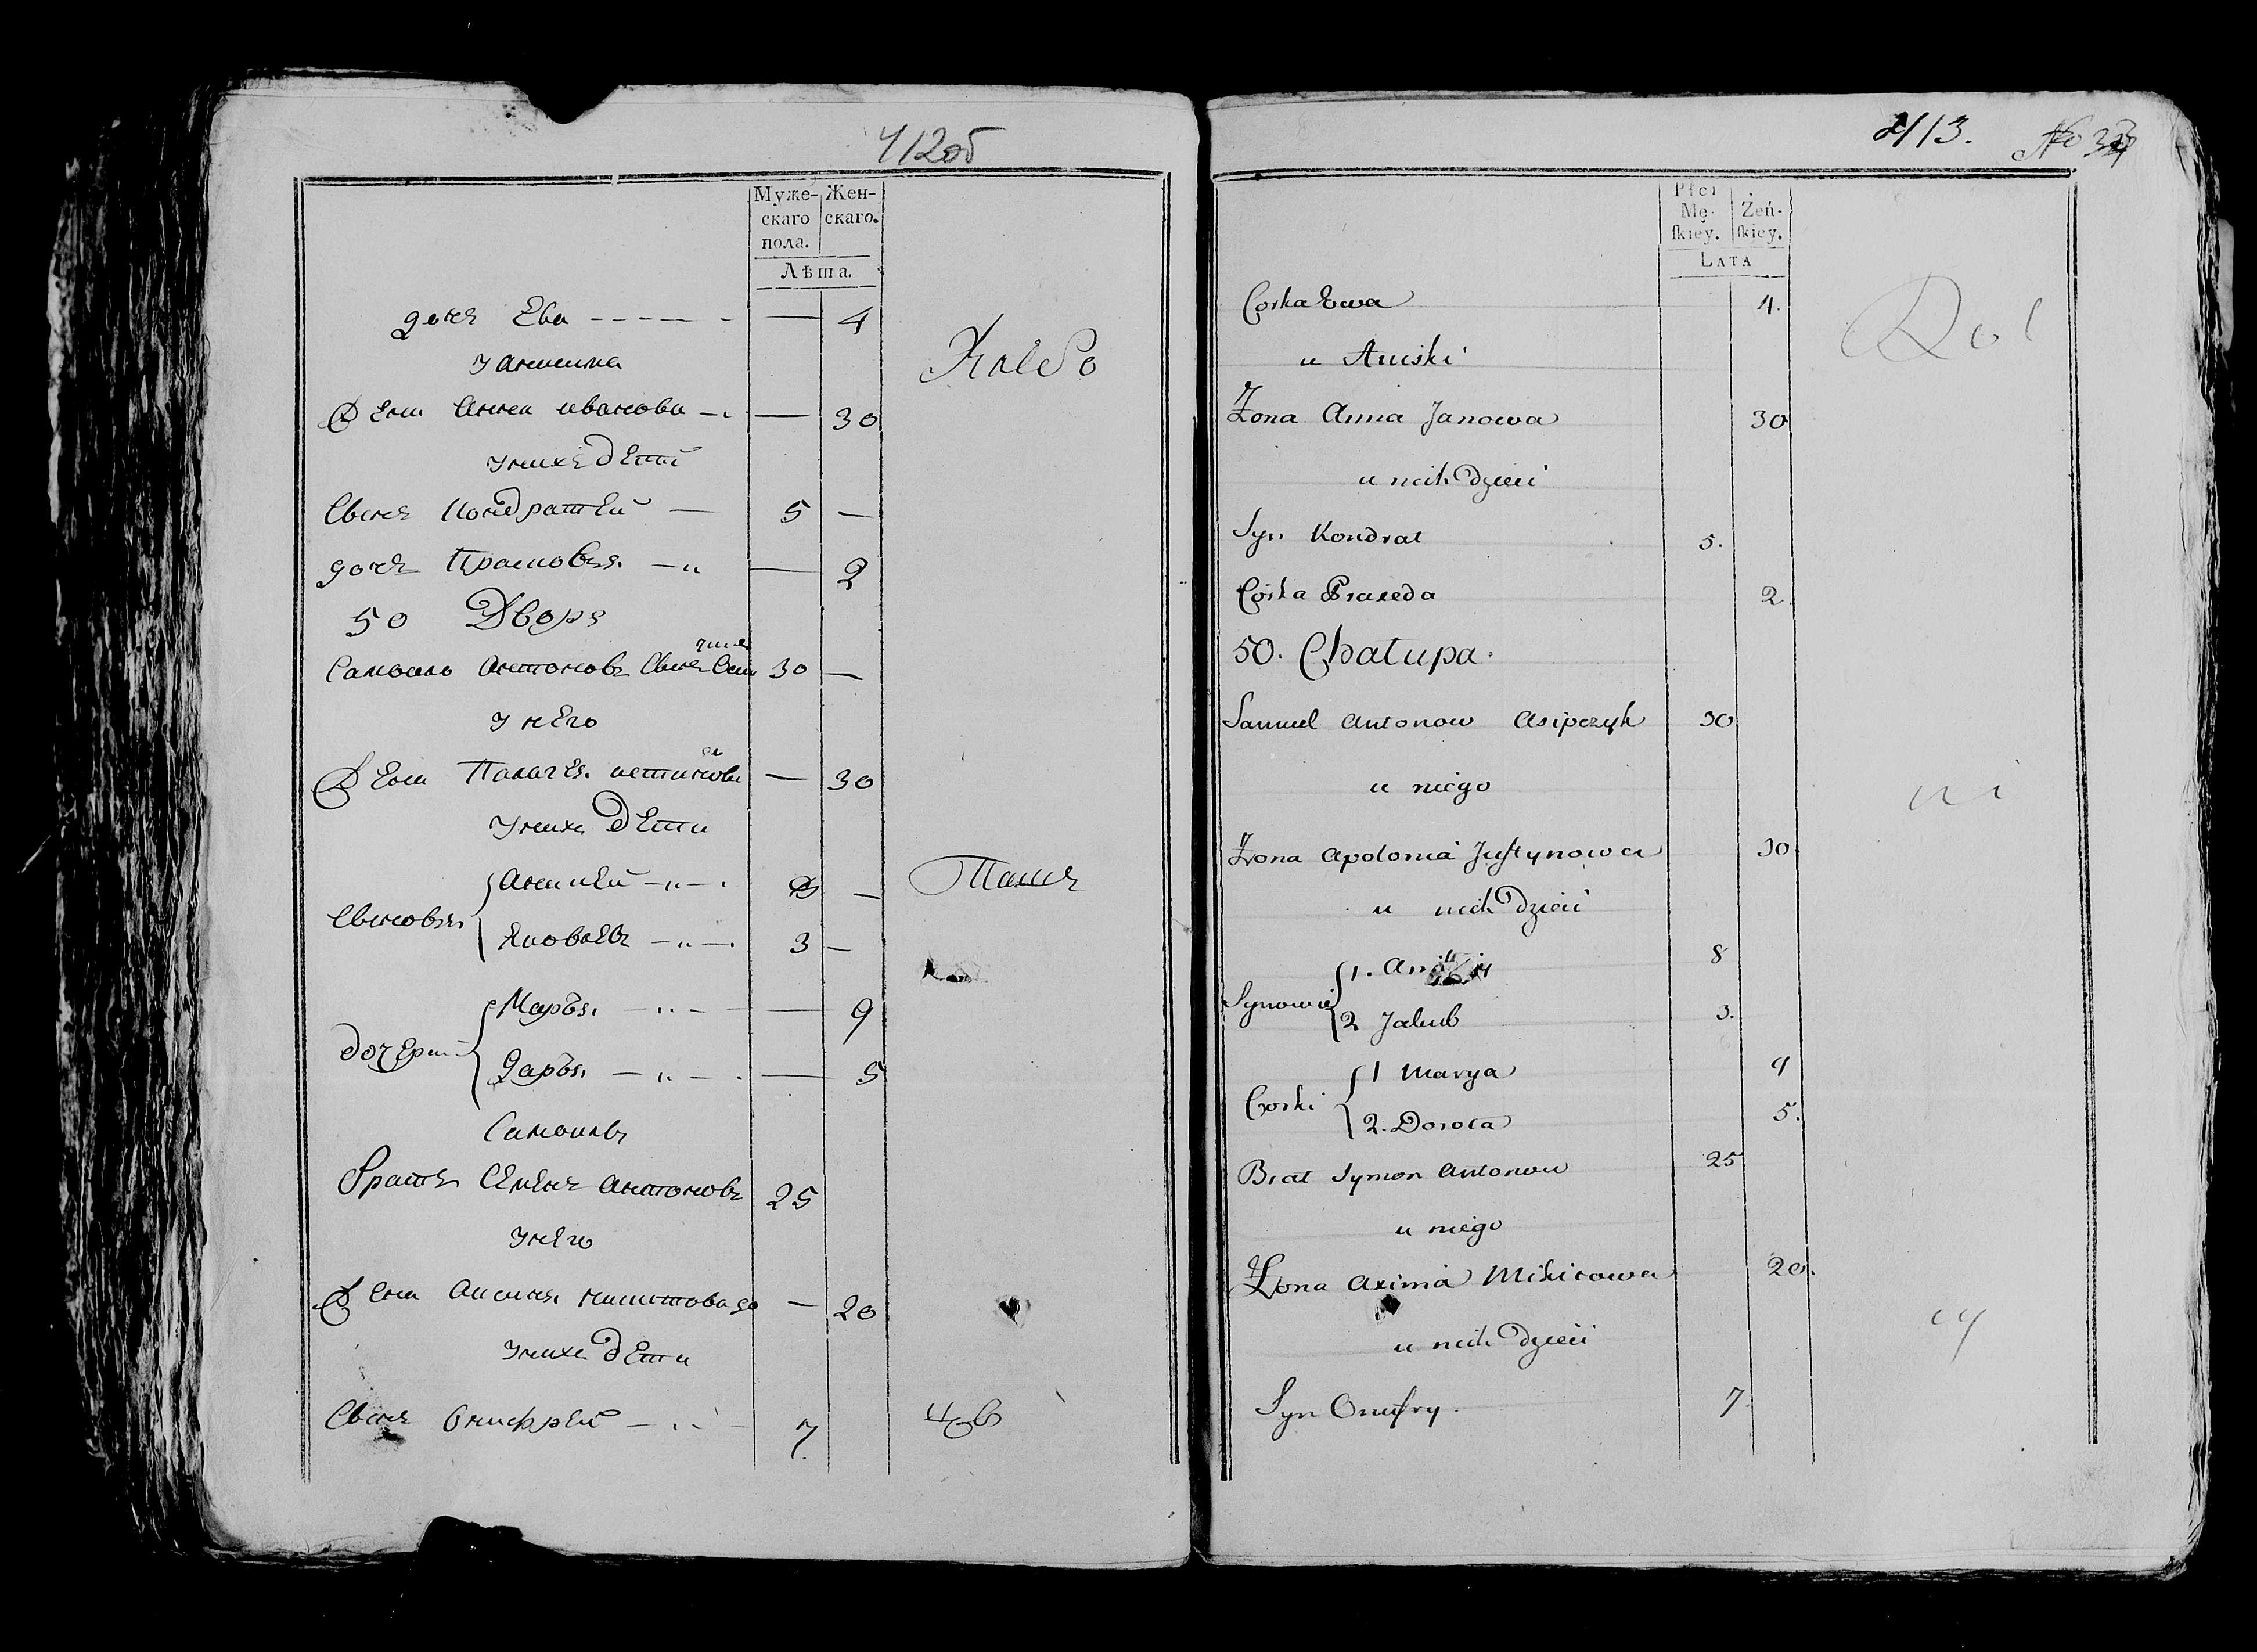 412об
Муже- Жен-
скаго скаго.
пола.
Лѣта.
дочь Ева — 4
Хлебо
У Анисима
Жена Анна Иванова — 30
У нихъ дети
Сынъ Кондратей — 5 —
дочь Прасковья — 2
50 Дворъ
Самойло Антоновъ Сынъ 30 —
У него
Жена Палагея — 30
У нихъ дети
Сыновья
Яковлевъ 3 —
Пашъ
дочери
Марья — 9
Дарья — 5
Самоилъ
братъ Семенъ Антоновъ 25
У него
Жена Аксинья Микитова — 20
У нихъ дети
Сынъ Онифрей 7
цов
413. No
Płci
Mę- Żeń-
ſkiey. ſkiey.
LATA
Corka Ewa 4.
u Aniski
Żona Anna Janowa 30
u nich Dzieci
Syn Kondrat 5.
Corka Praxeda 2.
50. Chałupa.
Samuel Antonow Asipczyk 30
u niego
Żona Apolonia Juſtynowa 30.
u nich Dzieci
Synowie
1. 8
2 Jakub 3.
Corki
1 Marya 9
2. Dorota 5.
Brat Symon Antonow 25
u niego
Żona Axinia Mikitowa 20.
u nich Dzieci
Syn Onufry. 7